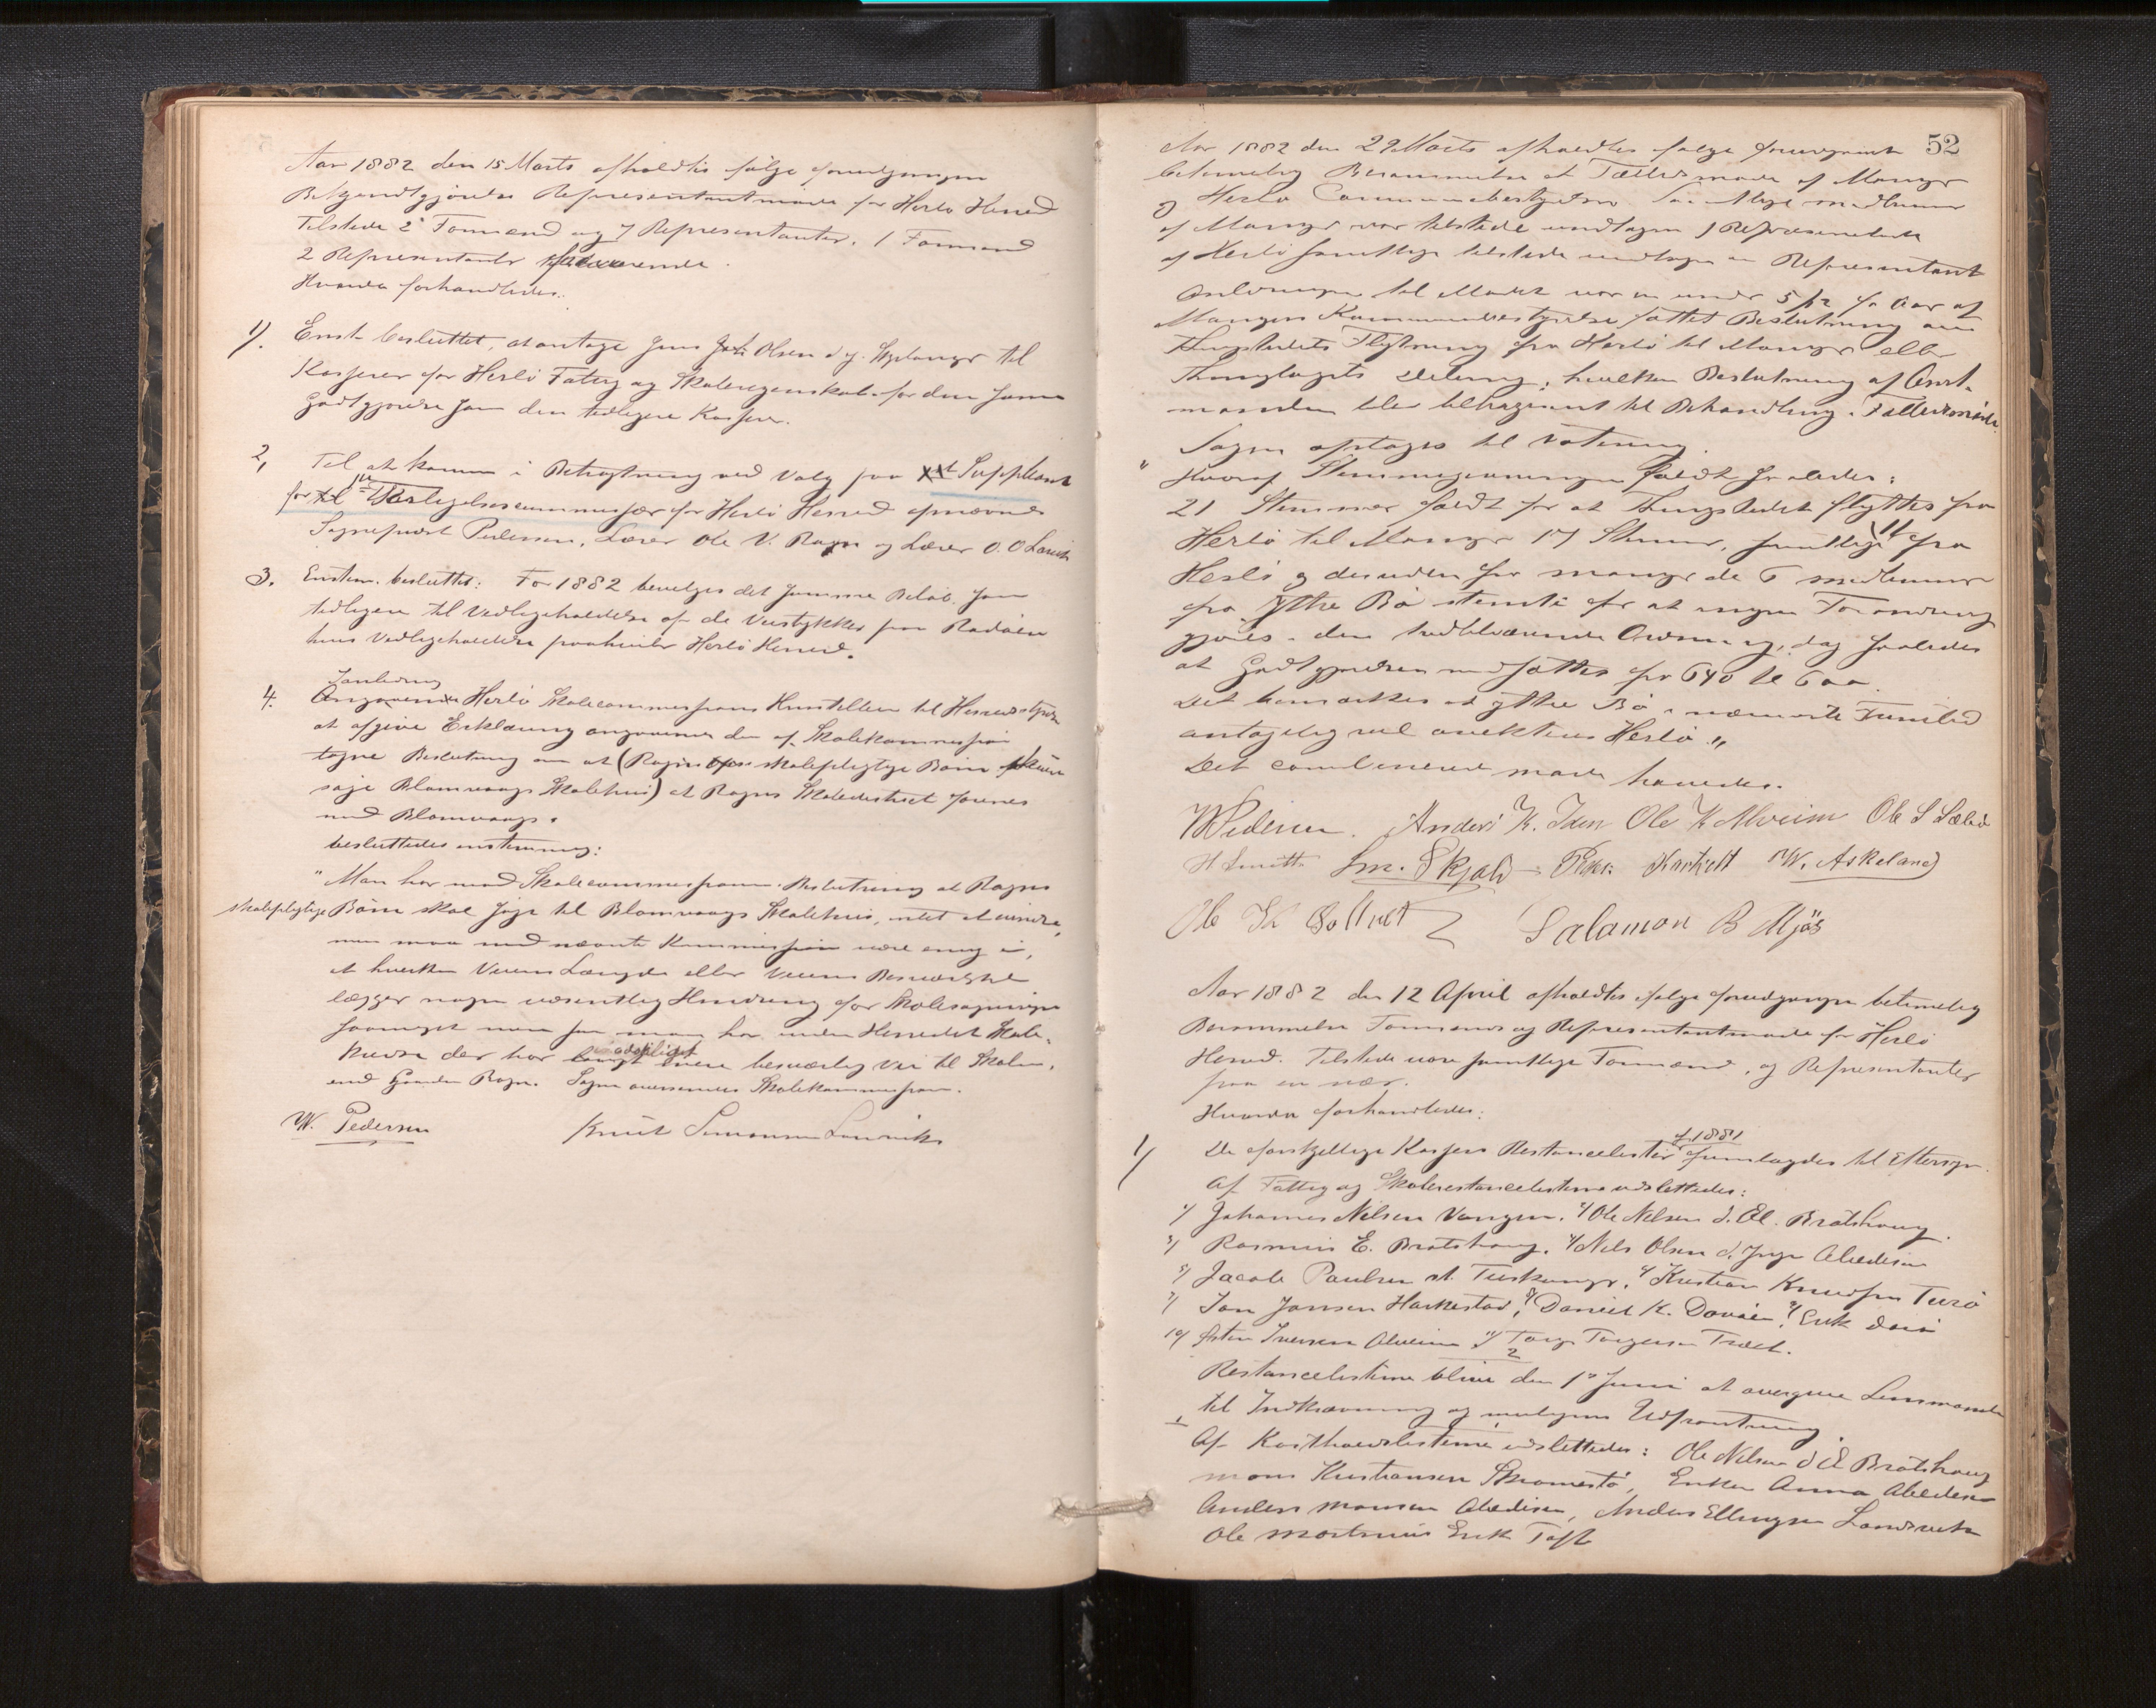 Aar 1882 den 15 Marts afholdtes følge forudgangen
Bekjendtgjørelse Representantmøde for Herlø Herred
Tilstede 2 Formænd og 7 Representanter. 1 Formand
2 Representanter fraværende.
Hvorda forhandledes:
1). Enst. besluttet, at antage Jens Olsen d.y. til
Kasserer for Herlö Fattig og Skoleregnskab for den samme
Godtgjørelse som den tidligere Kasserer.
2, Til at komme i Betragtning ved Valg paa Suppleant
for Forligelsescommissær for Herlö Herred opnævnes
Sogneprest Pedersen, Lærer Ole V. Ragn og Lærer O. O Larvik
3. Enstem. besluttet: For 1882 bevilges det samme Beløb som
tidligere til Vedligeholdelse af de Veistykker paa Radöen
hvis Vedligeholdelse paahviler Herlö Herred.
4. Ianledning Herlö Skolecommissions Henstillen til Herredsstyre
at afgive Erklæring angaaende den af Skolekommission
tagne Beslutning om at (Ragns skolepligtige Børn skulde
søge Blomvaags Skolehus) at Ragns Skoledistrict forenes
med Blomvaags.
besluttedes enstemmig:
"Man har mod Skolecommissionens Beslutning at Ragns
skolepligtige Børn skal søge til Blomvaags Skolehus, intet at erindre,
man maa med nævnte Kommission være enig i,
at hverken Veiens Længde eller Veiens Besværlighed
lægger nogen væsentlig Hindring for Skolesøgningen
saameget mere som man har inden Herredet Skole-
kredse der har adskilligt mere besværlig Vei til Skolen,
end Gaarden Ragn. Sagen oversendes Skolekommissionen.
W. Pedersen Knut Simonsen Landvik
52
Aar 1882 den 29 Marts afholdtes følge forudgaaende
betimelig Berammelse et Fællesmøde af Manger
og Herlö Communebestyrelse. Samtlige medlemmer
af Manger var tilstede undtagen 1 Repræsentant
af Herlö samtlige tilstede undtagen en Representant
Anledningen til Mødet var en under 5/12 f. Aar af
Mangers Kommunebestyrelse fattet Beslutning om
Thingstedets Flytning fra Herlö til Manger eller
Thinglagets Deling, hvilken Beslutning af Amt-
manden blev tilbagesent til Behandling i Fællesmöde.
Sagen optages til Votering
" Hvoraf Stemmegivningen faldt saaledes:
21 Stemmer faldt for at Thingstedet flyttes fra
Herlö til Manger 17 Stemmer, samtlige 11 fra
Herlö og desuden fra Manger de 6 medlemmer
fra Ytre Bö stemte for at ingen Forandring
gjøres i den nuværende Ordning, dog saaledes
at Godtgjørelsen nedsættes fra 640 til 600.
Det bemærkes at ytre Bö i nærværende Tinsted
antagelig vil annekteres Herlö."
Det combinerede møde hævedes.
W Pedersen. Anders K. Iden Ole K Alveim Ole S Sæbö
H Smith Sm. Skjold W. Askeland
Ole Salamon B Mjös
Aar 1882 den 12 April afholdtes følge forudgangen betimelig
Berammelse Formænds og Representantmøde for Herlö
Herred. Tilstede vare samtlige Formænd, og Representanter
paa en nær.
Hvorda forhandledes:
1/ De forskjellige Kassers Restancelister f. 1881 fremlagdes til Eftersyn.
Af Fattig og Skolerestancelisterne udslettedes:
1/ Johannes Nilsen Vangen. 2/ Ole Nilsen d. El. Bratshaug.
3/ Rasmus E. Bratshaug. 4/ Nils Olsen d. Yngr
5/ Jacob Paulsen st. Turskanger, 6/ Kristian Knudsen Turö
7/ Jon Jonsen Harkestad, 8/ Daniel K. Davöen, 9/ Erik
10/ Sten Iversen Alveim 11/ Torge Torgersen Træet.
2
Restancelisterne blive den 1ste Juni at overgive Lensmanden
til Indkrævning og muligens Udpantning
Af Kosthaldslisterne udslettedes: Ole Nilsen d Æ Bratshaug
Mons Kristiansen Skramestö, Enken Anna
Anders Monsen, Anders Ellingsen Landsvik
Ole Mortinius Erik Toft